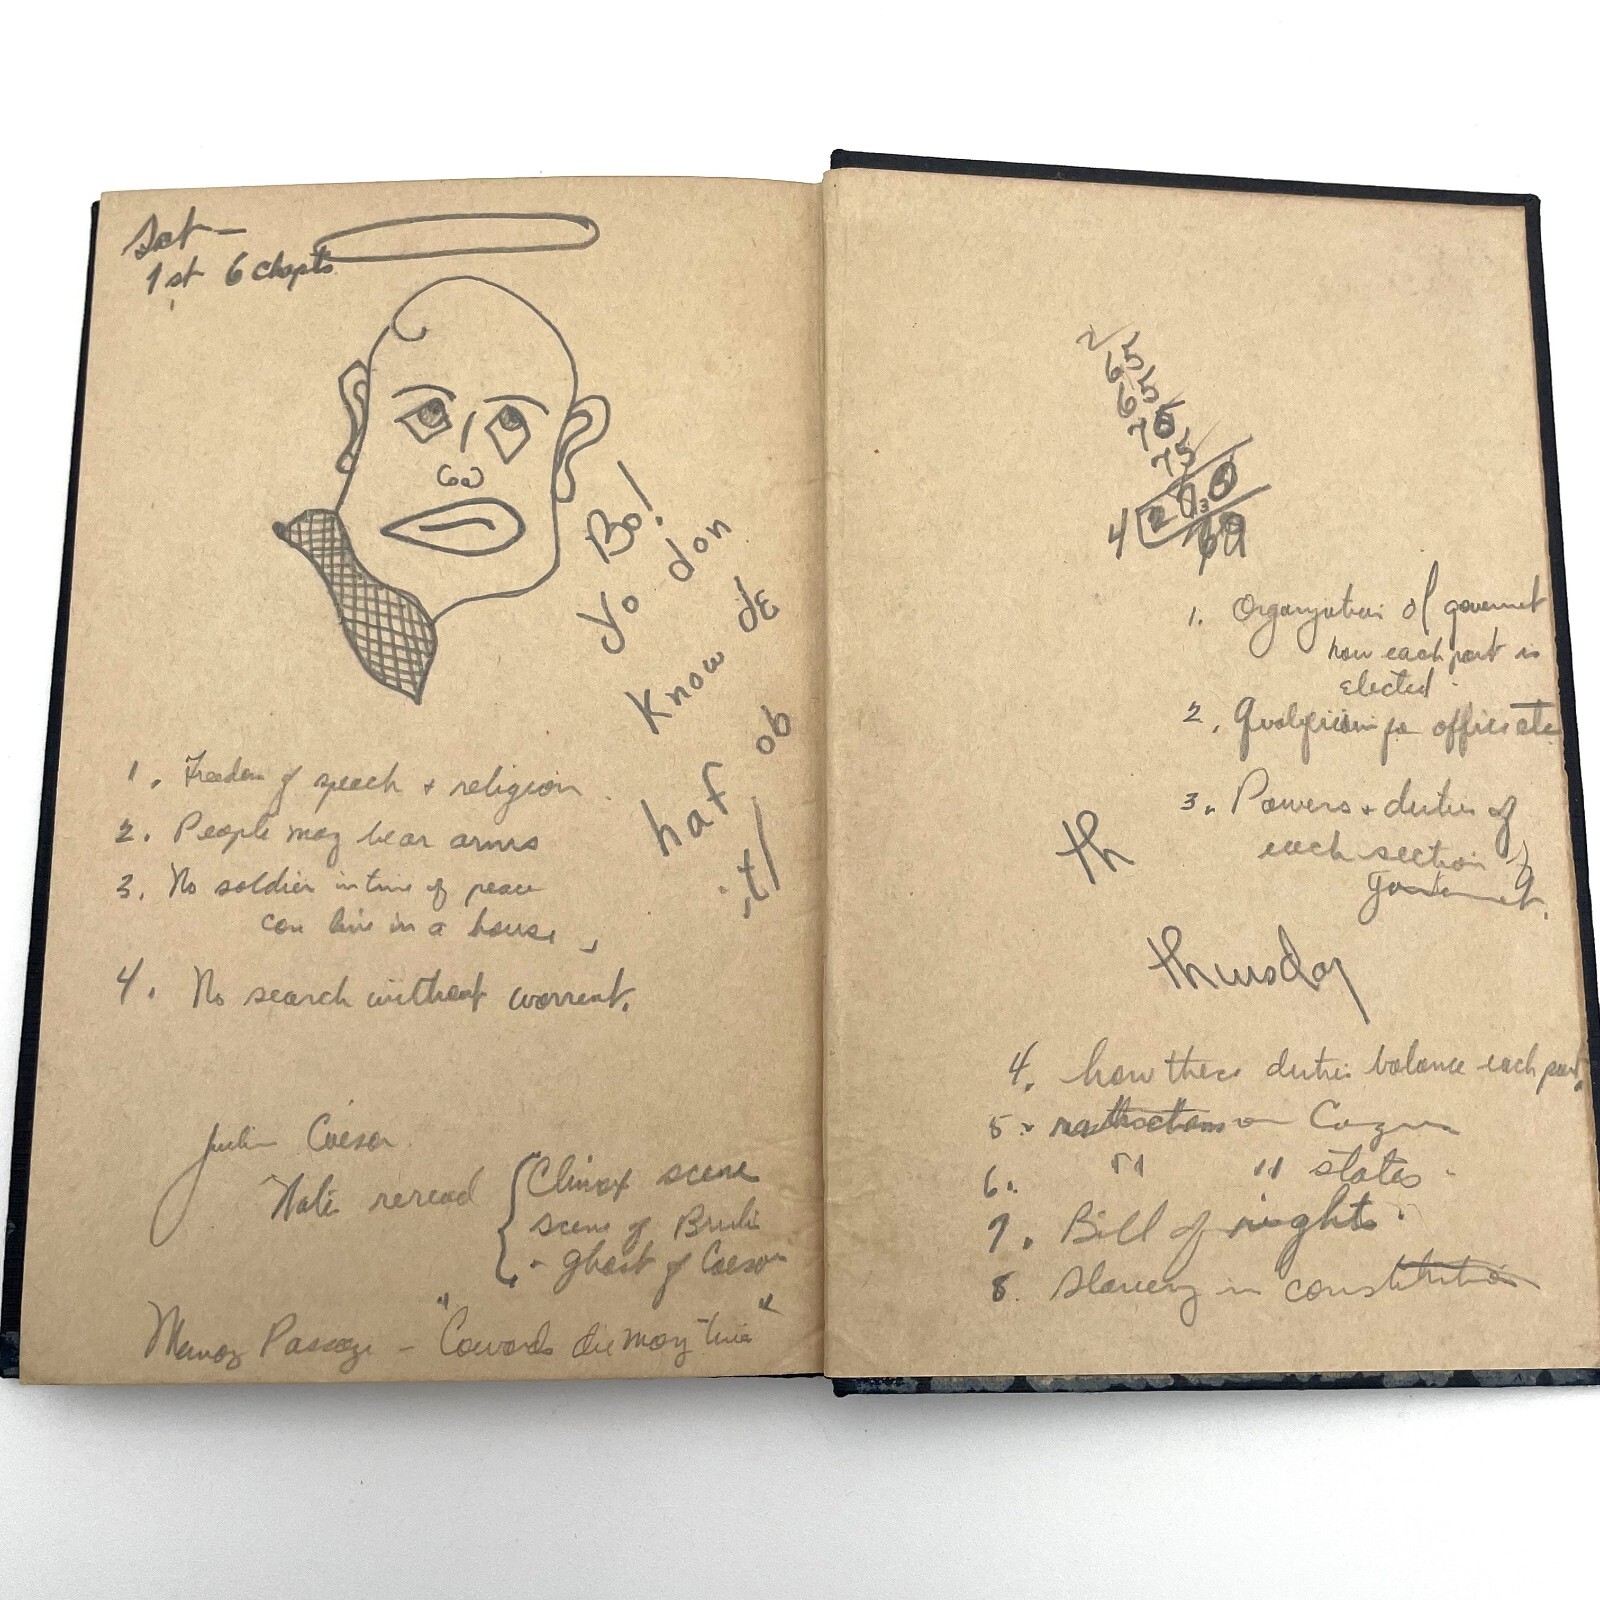 1st 6 chapts
Bo!
Yo don
know de
haf ob
it/
1. Freedom of speech + religion.
2. People may bear arms
3. No soldier in time of peace
can live in a house,
4. No search without warrent.
Julius Caesar
Note reread { Climax scene
scene of Brutis
- ghost of Caesar
Passage - "Cowards die many time"
2
65
65
75
4
69
1. Organization of goverment
how each part is
elected.
2. offices etc
3. Powers + duties of
each section of
goverment.
th
thursday
4. how these duties balance each part.
5. restrictions on
6. " " states.
7. Bill of rights.
8. Slavery in constitution